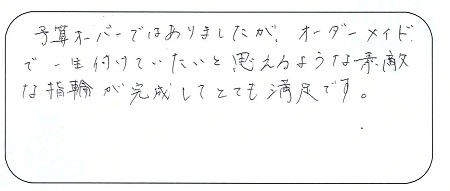 予算オーバーではありましたが、オーダーメイド
で一生付けていたいと思えるような素敵
な指輪が完成してとても満足です。